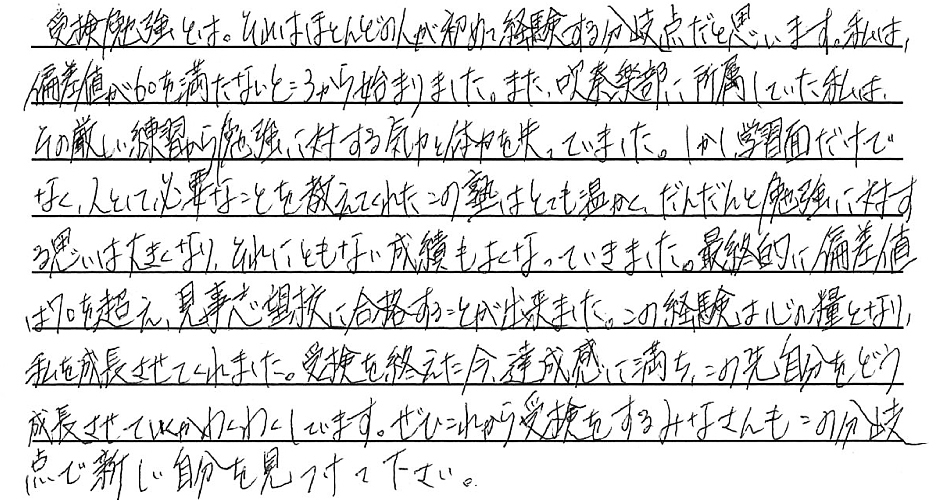 受検勉強とは。それはほとんどの人が初めて経験する分岐点だと思います。私は、
偏差値が60を満たないところから始まりました。また、吹奏楽部に所属していた私は、
その厳しい練習から勉強に対する気力と体力を失っていました。しかし学習面だけで
なく、人として必要なことを教えてくれたこの塾はとても温かく、だんだんと勉強に対す
る思いは大きくなり、それにともない成績もよくなっていきました。最終的に偏差値
は70を超え、見事志望校に合格することが出来ました。この経験は心の糧となり、
私を成長させてくれました。受検を終えた今、達成感に満ち、この先自分をどう
成長させていくかわくわくしています。ぜひこれから受検をするみなさんもこの分岐
点で新しい自分を見つけて下さい。